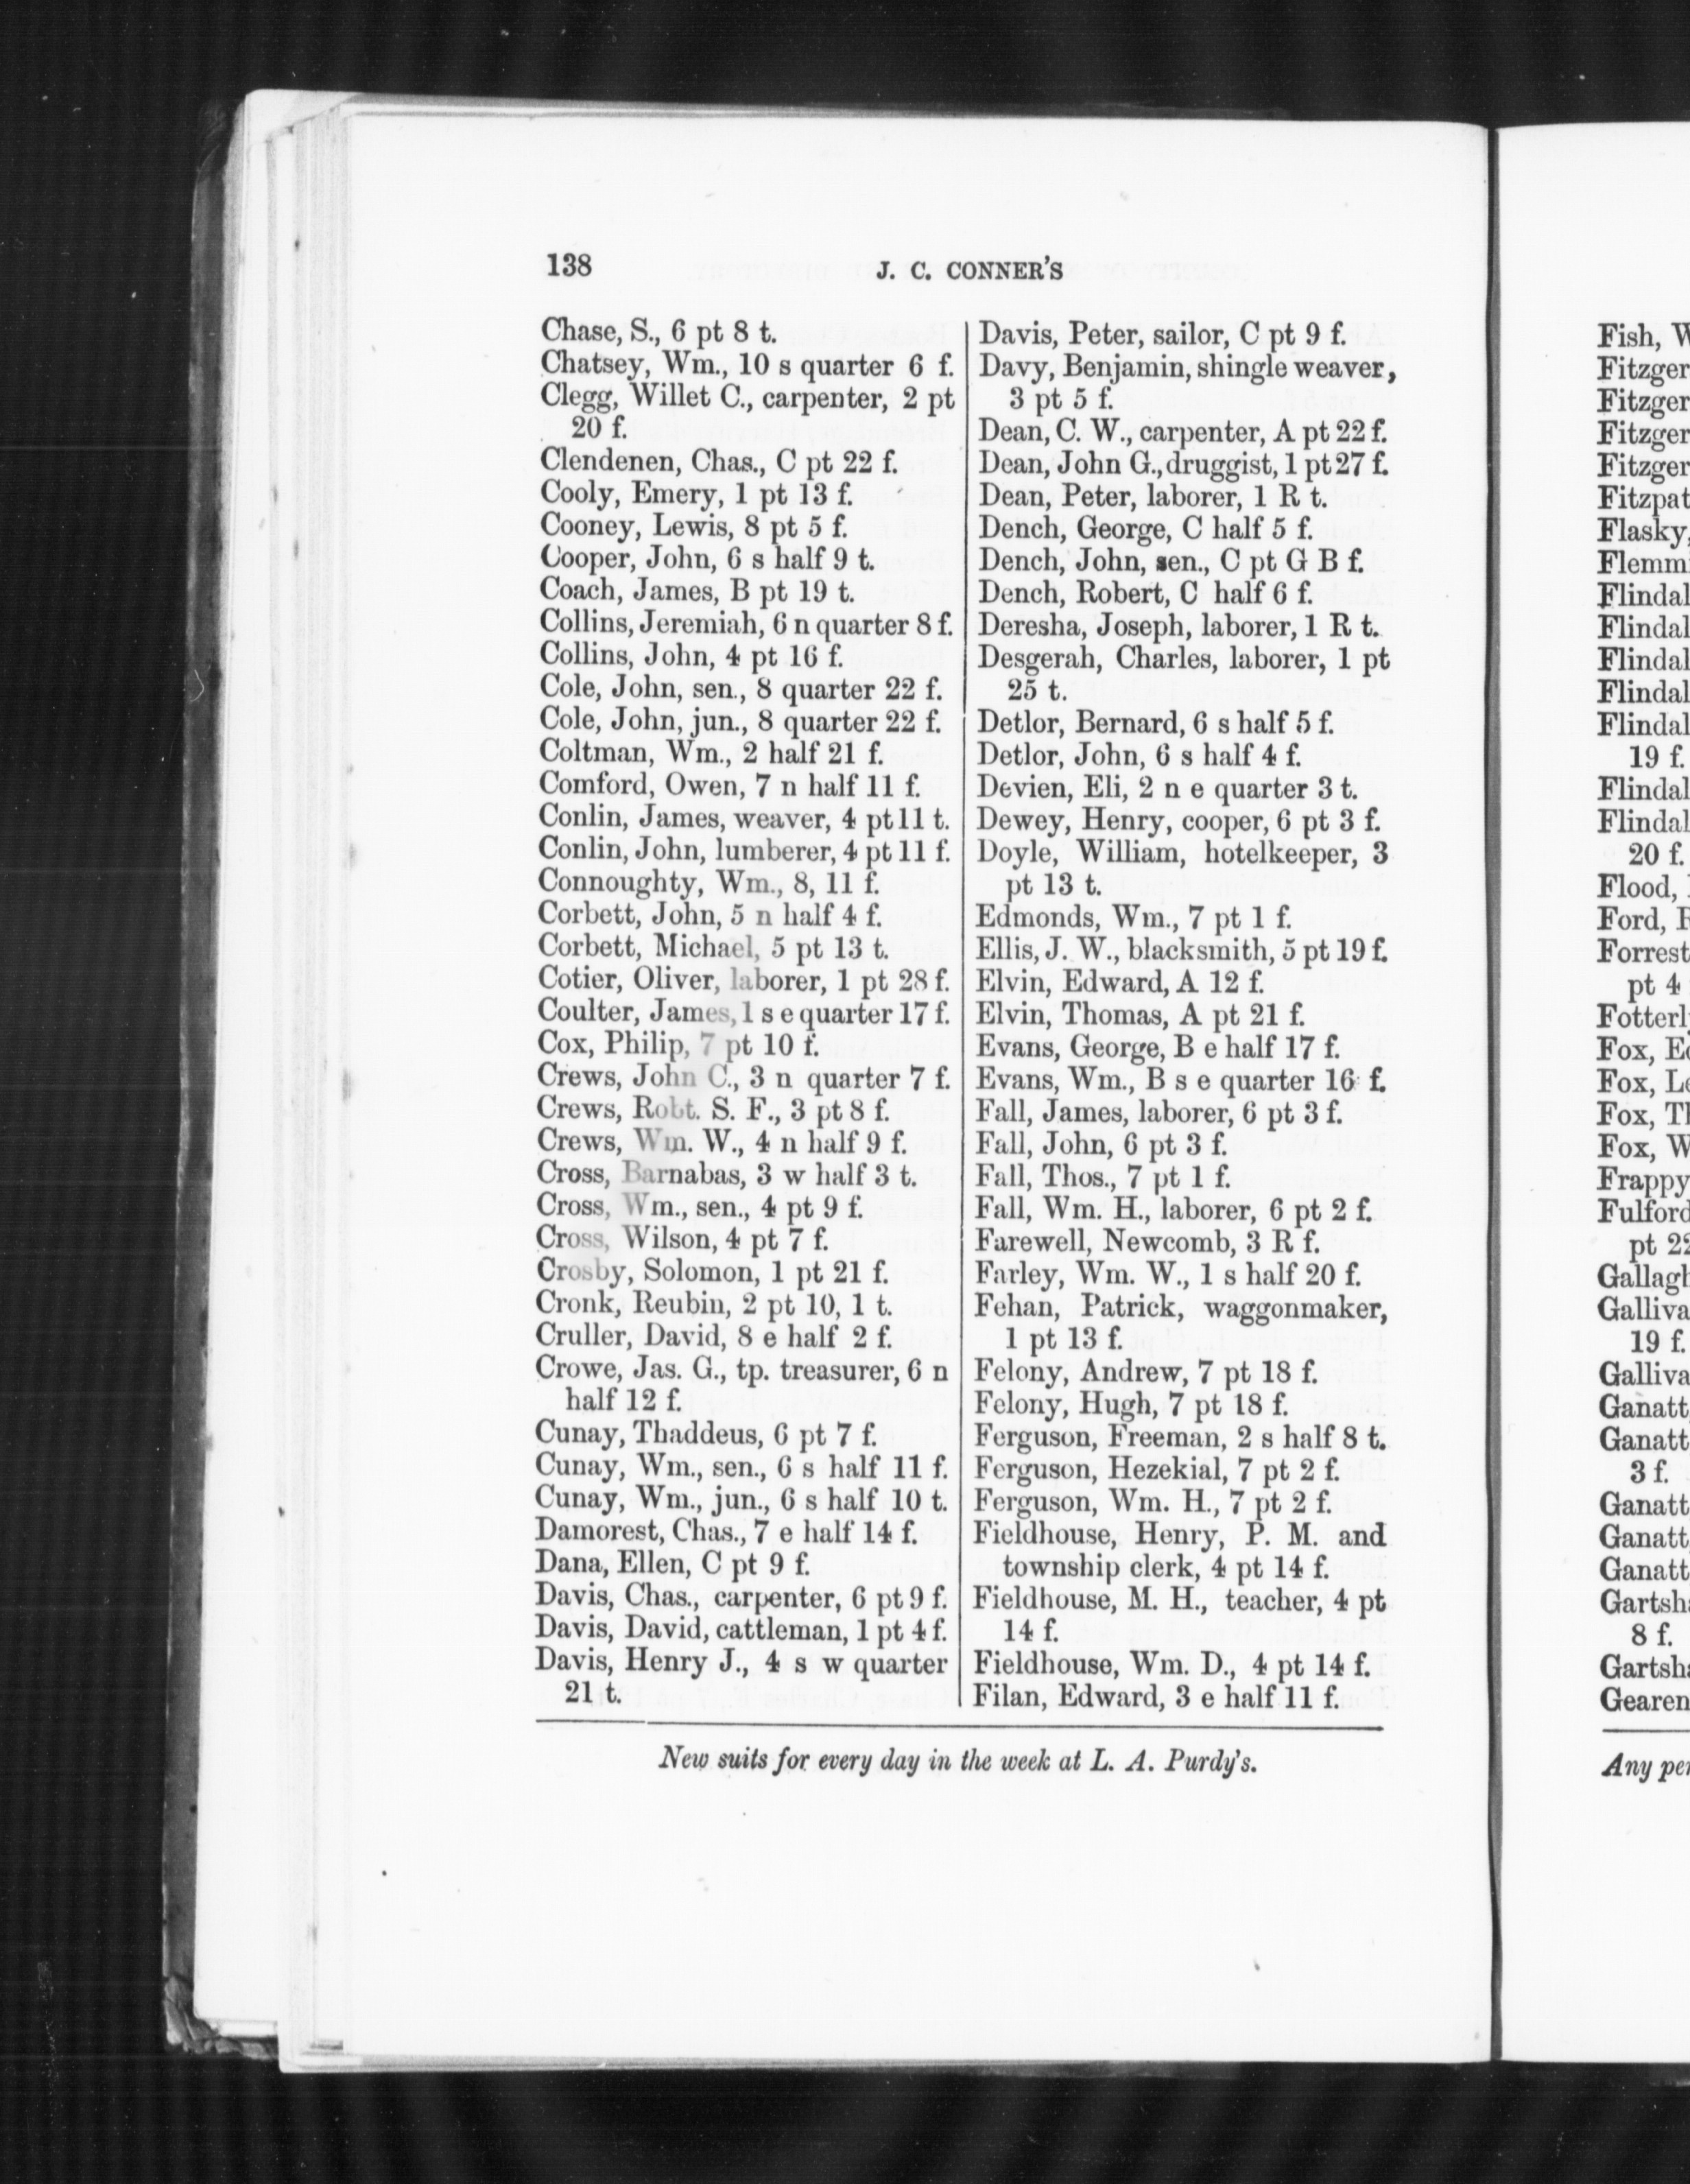 138
J. C. CONNER'S
Chase, S., 6 pt 8 t.
Chatsey, Wm., 10 s quarter 6 f.
Clegg, Willet C., carpenter, 2 pt
20 f.
Clendenen, Chas., C pt 22 f.
Cooly, Emery, 1 pt 13 f.
Cooney, Lewis, 8 pt 5 f.
Cooper, John, 6 s half 9 t.
Coach, James, B pt 19 t.
Collins, Jeremiah, 6 n quarter 8 f.
Collins, John, 4 pt 16 f.
Cole, John, sen., 8 quarter 22 f.
Cole, John, jun., 8 quarter 22 f.
Coltman, Wm., 2 half 21 f.
Comford, Owen, 7 n half 11 f.
Conlin, James, weaver, 4 pt 11 t.
Conlin, John, lumberer, 4 pt 11 f.
Connoughty, Wm., 8, 11 f.
Corbett, John, 5 n half 4 f.
Corbett, Michael, 5 pt 13 t.
Cotier, Oliver, laborer, 1 pt 28 f.
Coulter, James, 1 s e quarter 17 f.
Cox, Philip, 7 pt 10 f.
Crews, John C., 3 n quarter 7 f.
Crews, Robt. S. F., 3 pt 8 f.
Crews, Wm. W., 4 n half 9 f.
Cross, Barnabas, 3 w half 3 t.
Cross, Wm., sen., 4 pt 9 f.
Cross, Wilson, 4 pt 7 f.
Crosby, Solomon, 1 pt 21 f.
Cronk, Reubin, 2 pt 10, 1 t.
Cruller, David, 8 e half 2 f.
Crowe, Jas. G., tp. treasurer, 6 n
half 12 f.
Cunay, Thaddeus, 6 pt 7 f.
Cunay, Wm., sen., 6 s half 11 f.
Cunay, Wm., jun., 6 s half 10 t.
Damorest, Chas., 7 e half 14 f.
Dana, Ellen, C pt 9 f.
Davis, Chas., carpenter, 6 pt 9 f.
Davis, David, cattleman, 1 pt 4 f.
Davis, Henry J., 4 s w quarter
21 t.
Davis, Peter, sailor, C pt 9 f.
Davy, Benjamin, shingle weaver,
3 pt 5 f.
Dean, C. W., carpenter, A pt 22 f.
Dean, John G., druggist, 1 pt 27 f.
Dean, Peter, laborer, 1 R t.
Dench, George, C half 5 f.
Dench, John, sen., C pt G B f.
Dench, Robert, C half 6 f.
Deresha, Joseph, laborer, 1 R t.
Desgerah, Charles, laborer, 1 pt
25 t.
Detlor, Bernard, 6 s half 5 f.
Detlor, John, 6 s half 4 f.
Devien, Eli, 2 n e quarter 3 t.
Dewey, Henry, cooper, 6 pt 3 f.
Doyle, William, hotelkeeper, 3
pt 13 t.
Edmonds, Wm., 7 pt 1 f.
Ellis, J. W., blacksmith, 5 pt 19 f.
Elvin, Edward, A 12 f.
Elvin, Thomas, A pt 21 f.
Evans, George, B e half 17 f.
Evans, Wm., B s e quarter 16 f.
Fall, James, laborer, 6 pt 3 f.
Fall, John, 6 pt 3 f.
Fall, Thos., 7 pt 1 f.
Fall, Wm. H., laborer, 6 pt 2 f.
Farewell, Newcomb, 3 R f.
Farley, Wm. W., 1 s half 20 f.
Fehan, Patrick, waggonmaker,
1 pt 13 f.
Felony, Andrew, 7 pt 18 f.
Felony, Hugh, 7 pt 18 f.
Ferguson, Freeman, 2 s half 8 t.
Ferguson, Hezekial, 7 pt 2 f.
Ferguson, Wm. H., 7 pt 2 f.
Fieldhouse, Henry, P. M. and
township clerk, 4 pt 14 f.
Fieldhouse, M. H., teacher, 4 pt
14 f.
Fieldhouse, Wm. D., 4 pt 14 f.
Filan, Edward, 3 e half 11 f.
New suits for every day in the week at L. A. Purdy's.
Fish,
Flasky,
19 f.
20 f.
Flood,
Ford,
Forrest
pt 4
Fox,
Fox,
Fox,
Fox,
Frappy
Fulford
pt 22
19 f.
Ganatt,
Ganatt
3 f.
Ganatt
Ganatt,
Ganatt
8 f.
Any